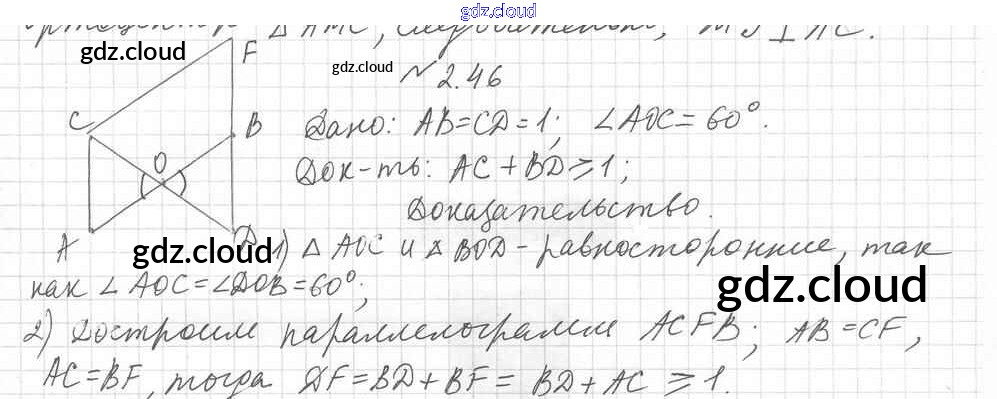 gdz.cloud
△ AMC, следовательно, MJ ⊥ AC.
gdz.cloud
F
gdz.cloud
№ 2.46
C
B
Дано: AB=CD=1; ∠AOC=60°.
O
Док-ть: AC+BD⩾1;
Доказательство.
A
D
gdz.cloud
1) △ AOC и △ BOD - равносторонние, так
как ∠AOC=∠DOB=60°;
gdz.cloud
2) Достроим параллелограмм ACFB; AB=CF,
AC=BF, тогда DF=BD+BF= BD+AC ⩾1.